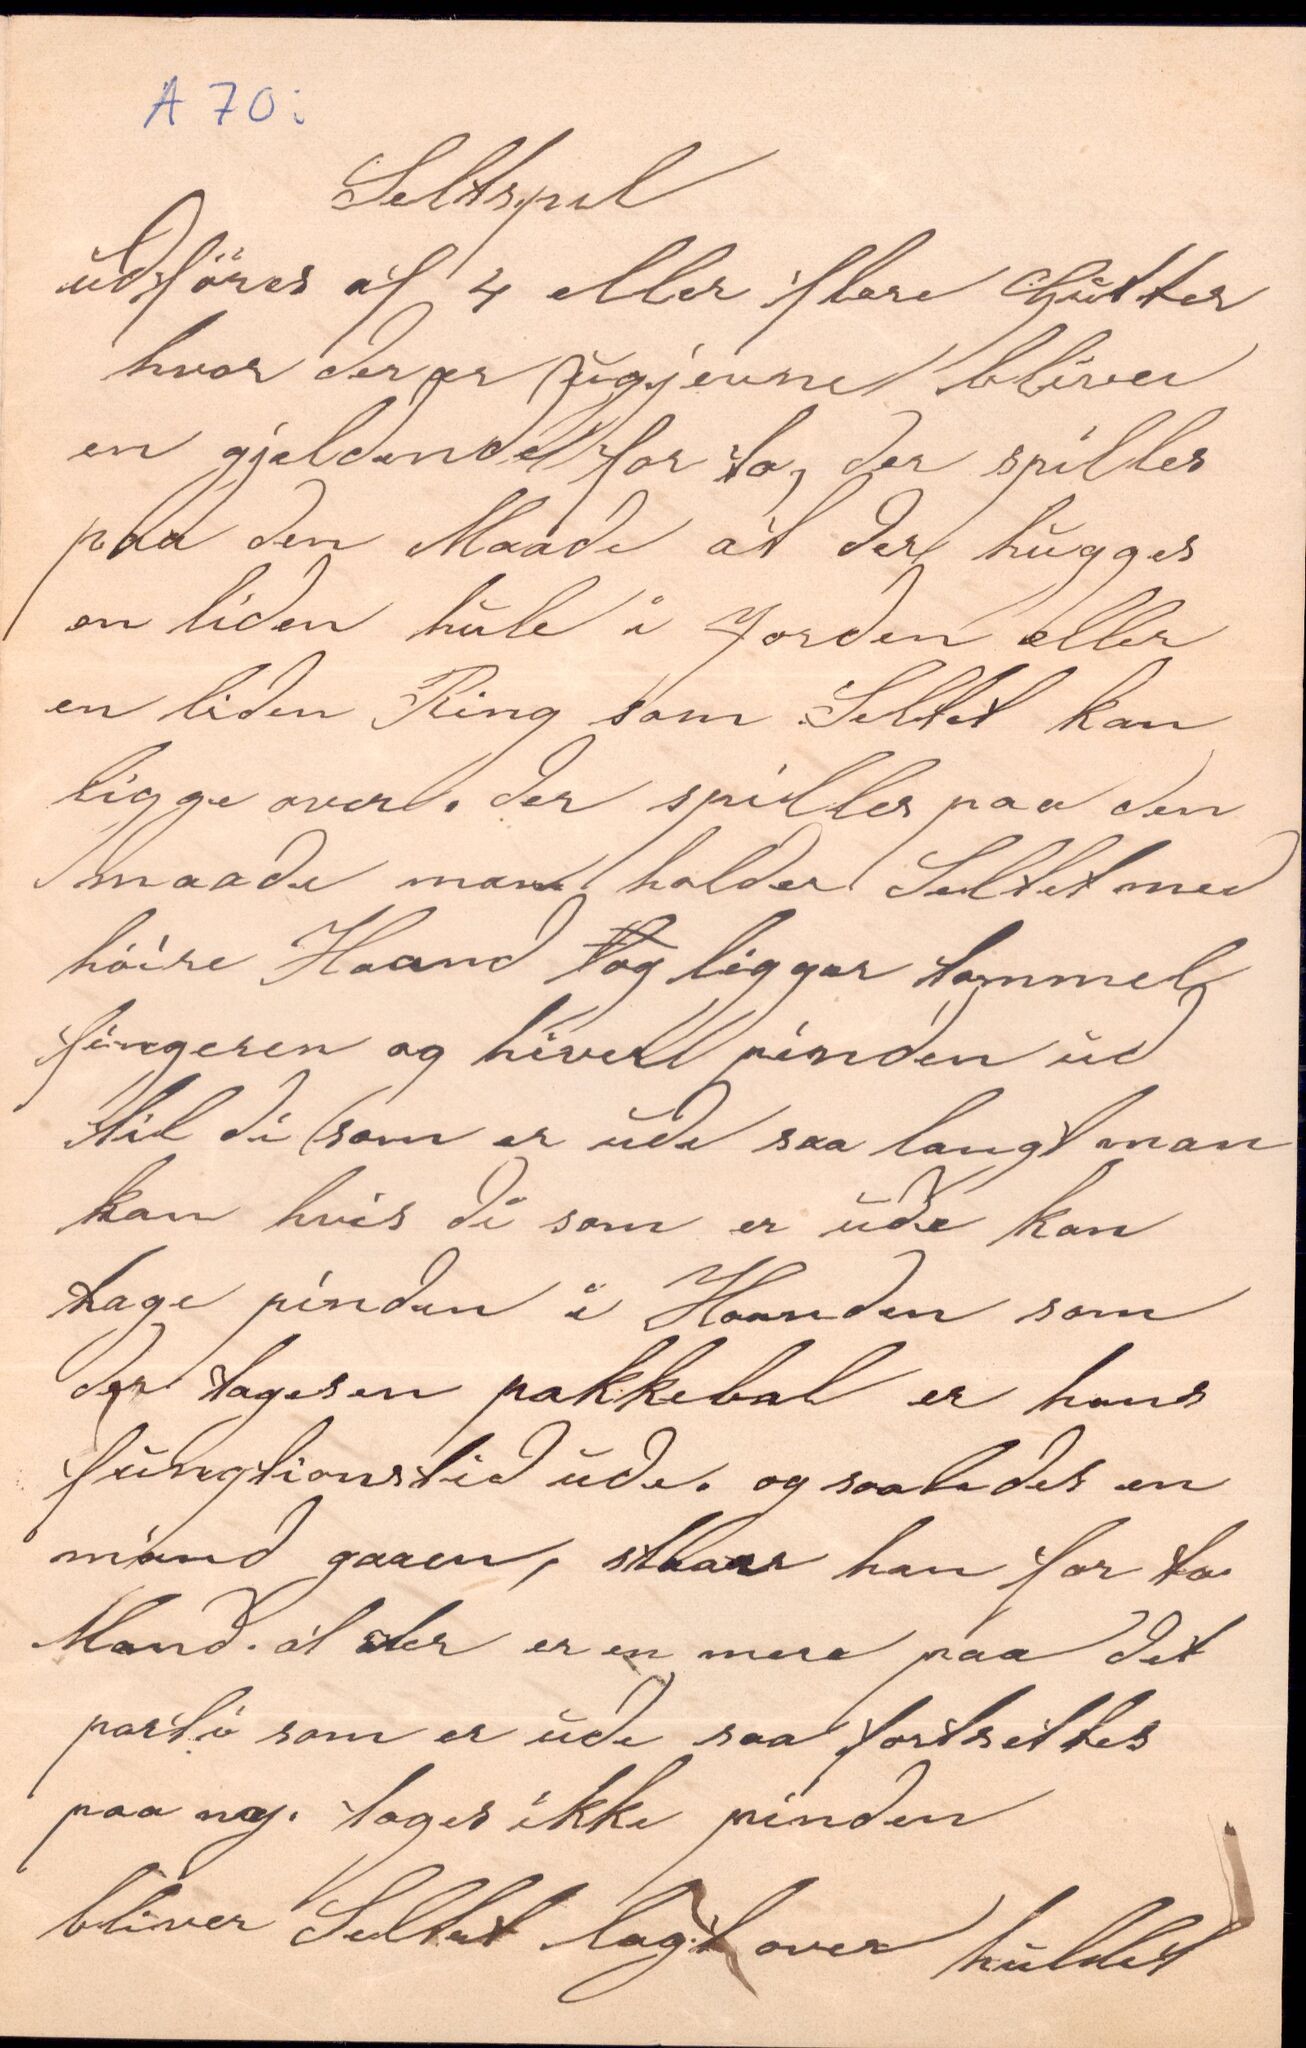 A 70:
Seltspel
udføres af 4 eller flere Gutter
hvor der er ugjevne bliver
en gjeldende for to, der spilles
paa den Maade at der hugges
en liden hule i Jorden eller
en liden Ring som Seltet kan
ligge over. der spilles paa den
maade man holder Seltet med
høire Haand og ligger tommel
fingeren og hiver pinden ud
til di som er ude saa langt man
kan hvis di som er ude kan
tage pinden i Haanden som
der tages en pakkebal er hans
fungtionstid ude. og saaledes en
mand gaaen, staar han for to
Mand. at der er en mere paa det
parti som er ude saa fortsettes
paa ny. tages ikke pinden
bliver Seltet lagt over hullet